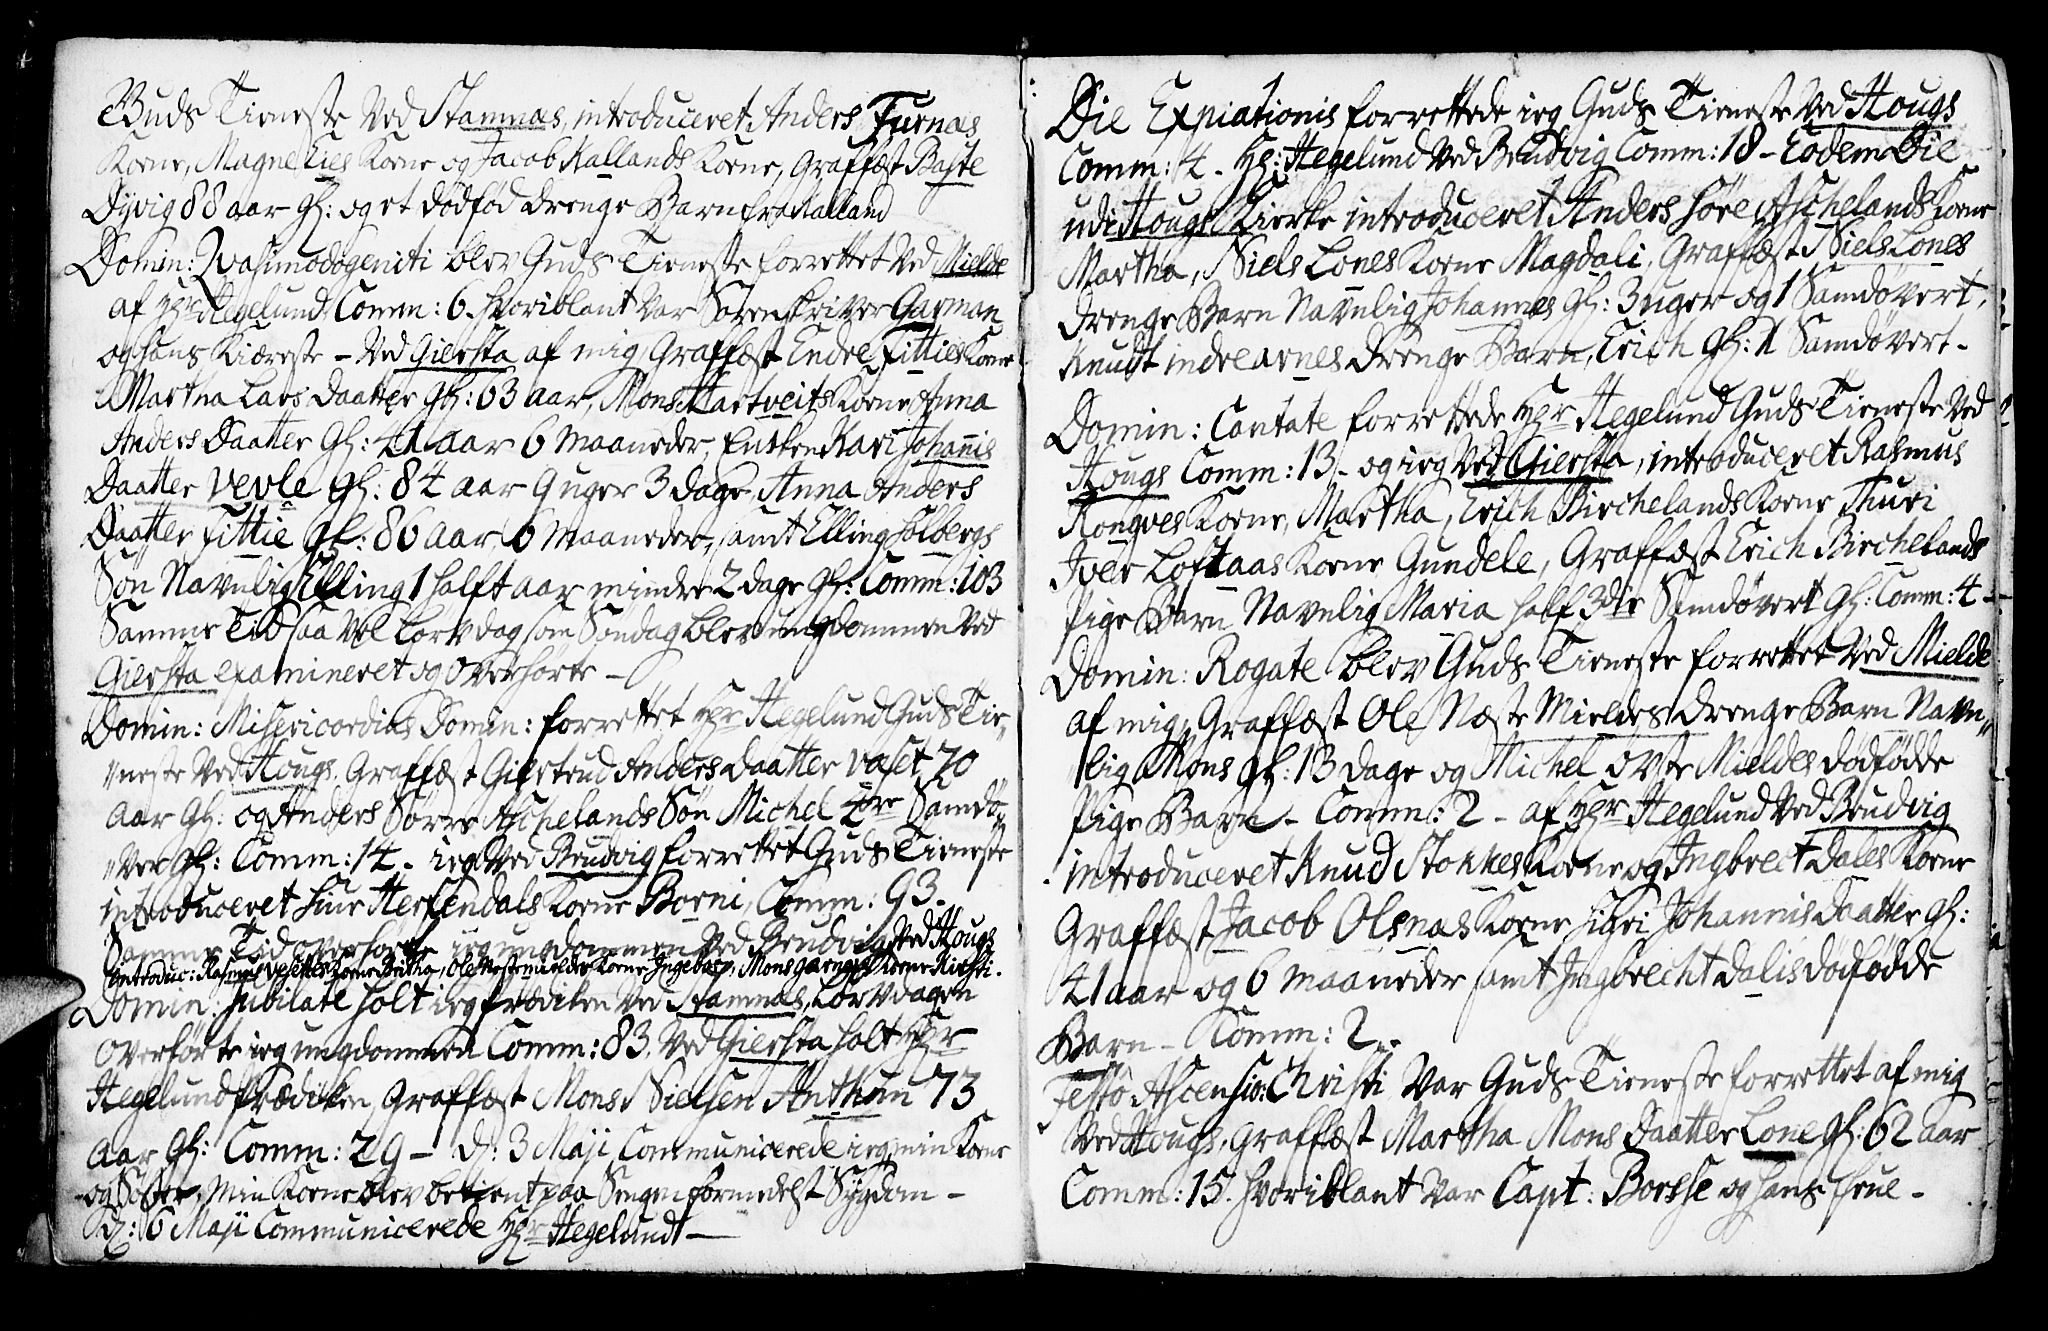 Guds Tieneste Ved Stamnæs, introduceret Anders Furnæs
Kone, Magne Eies Kone og Jacob Kallands Kone, Graffæst Baste
Dyvig 88 aar Gl: og et dødfød drenge Barn fra Kalland
Domin: Qvasimodogeniti blev Guds Tieneste forrettet Ved Mielde
af Hr Hegelund Comm: 6. hvoriblant var Sorenskriver Garman
og hans Kiæreste – Ved Giersta af mig, Graffæst Endre Fitties Kone
Martha Lars Daatter Gl: 63 aar, Mons Hartveits Kone Anna
Anders Daatter Gl: 41 aar 6 Maaneder, Enken Kari Johannis
Daatter Vevle Gl: 84 aar 9 uger 3 dage Anna Anders
Daatter Fittie Gl: 86 aar, 6 Maaneder, samt Elling Holbergs
Søn Navnlig Elling 1 halft aar mindre 2 dage Gl: Comm: 103
Samme Tid saa vel Løvrdag som Søndag blev ungdommen Ved
Giersta examineret og Overhørte –
Domin: Misericordias Domin: forrettet Hr Hegelund Guds Tie„
„neste Ved Hougs, Graffæst Giertrud Anders Daatter Vaset 70
aar Gl: og Anders Sørre Aschelands Søn Michel 4re Samdø„
„ver Gl: Comm: 14. ieg Ved Brudvig forrettet Guds Tieneste
introduceret Siur Herfendals Kone Borni, Comm: 93.
Samme Tid overhørte ieg ungdommen Ved Brudvig Ved Hougs
introduc: Rasmus Vesettes Kone Britha, Ole Nestemieldes Kone Ingeborg, Mons Garnæs Kone Kirsti.
Domin: Jubilate holt ieg Prædiken Ved Stamnæs, Løvrdagen
Overhørte ieg ungdommen Comm: 83. Ved Giersta holt Hr
Hegelund Prædiken, Graffæst Mons Nielsen Anthun 73
Aar Gl: Comm: 29 – d: 3 Maji Communicerede ieg min Kone
og Søster, Min Kone blev betient paa Sengen formedelst Sygdom –
d: 6 Maji Communicerede Hr Hegelund –
Die Expiationis forrettede ieg Guds Tieneste Ved Hougs
Comm: 4. Hr: Hegelund Ved Brudvig Comm: 18 – Eodem Die
udi Hougs Kierke introduceret Anders Søre Aschelands Kone
Martha, Niels Lones Kone Magdali, Graffæst Niels Lones
drenge Barn Navnlig Johannes Gl: 3 uger og 1 Samdøvert,
Knudt indrearnes drenge Barn, Erich Gl: 1 Samdøvert.
Domin: Cantate forrettede Hr Hegelund Guds Tieneste Ved
Hougs Comm: 13 – og ieg Ved Giersta, introduceret Rasmus
Rongves Kone, Martha, Erich Birchelands Kone Thuri
Iver Loftaas Kone Gundele, Graffæst Erich Birchelands
Pige Barn Navnlig Maria half 3die Samdøvert Gl: Comm: 4 –
Domin: Rogate blev Guds Tieneste forrettet Ved Mielde
af mig, Graffæst Ole Næste Mieldes drenge Barn Navn„
„lig Mons Gl: 13 dage og Michel Øvste Mieldes dødfødde
Pige Barn – Comm: 2 – af Hr Hegelund Ved Brudvig
introduceret Knud Stokkes Kone og Ingbrect Dales Kone
Graffæst Jacob Olsnæs Kone Sigri Johannis Daatter Gl:
41 aar og 6 Maaneder samt Ingbrecht Dalis dødfødde
Barn – Komm: 2.
Festo Ascensio: Christi Var Guds Tieneste forrettet af mig
Ved Hougs, Graffæst Martha Mons Daatter Lone Gl: 62 aar
Comm: 15. hvoriblant var Capt: Borsse og hans Frue –